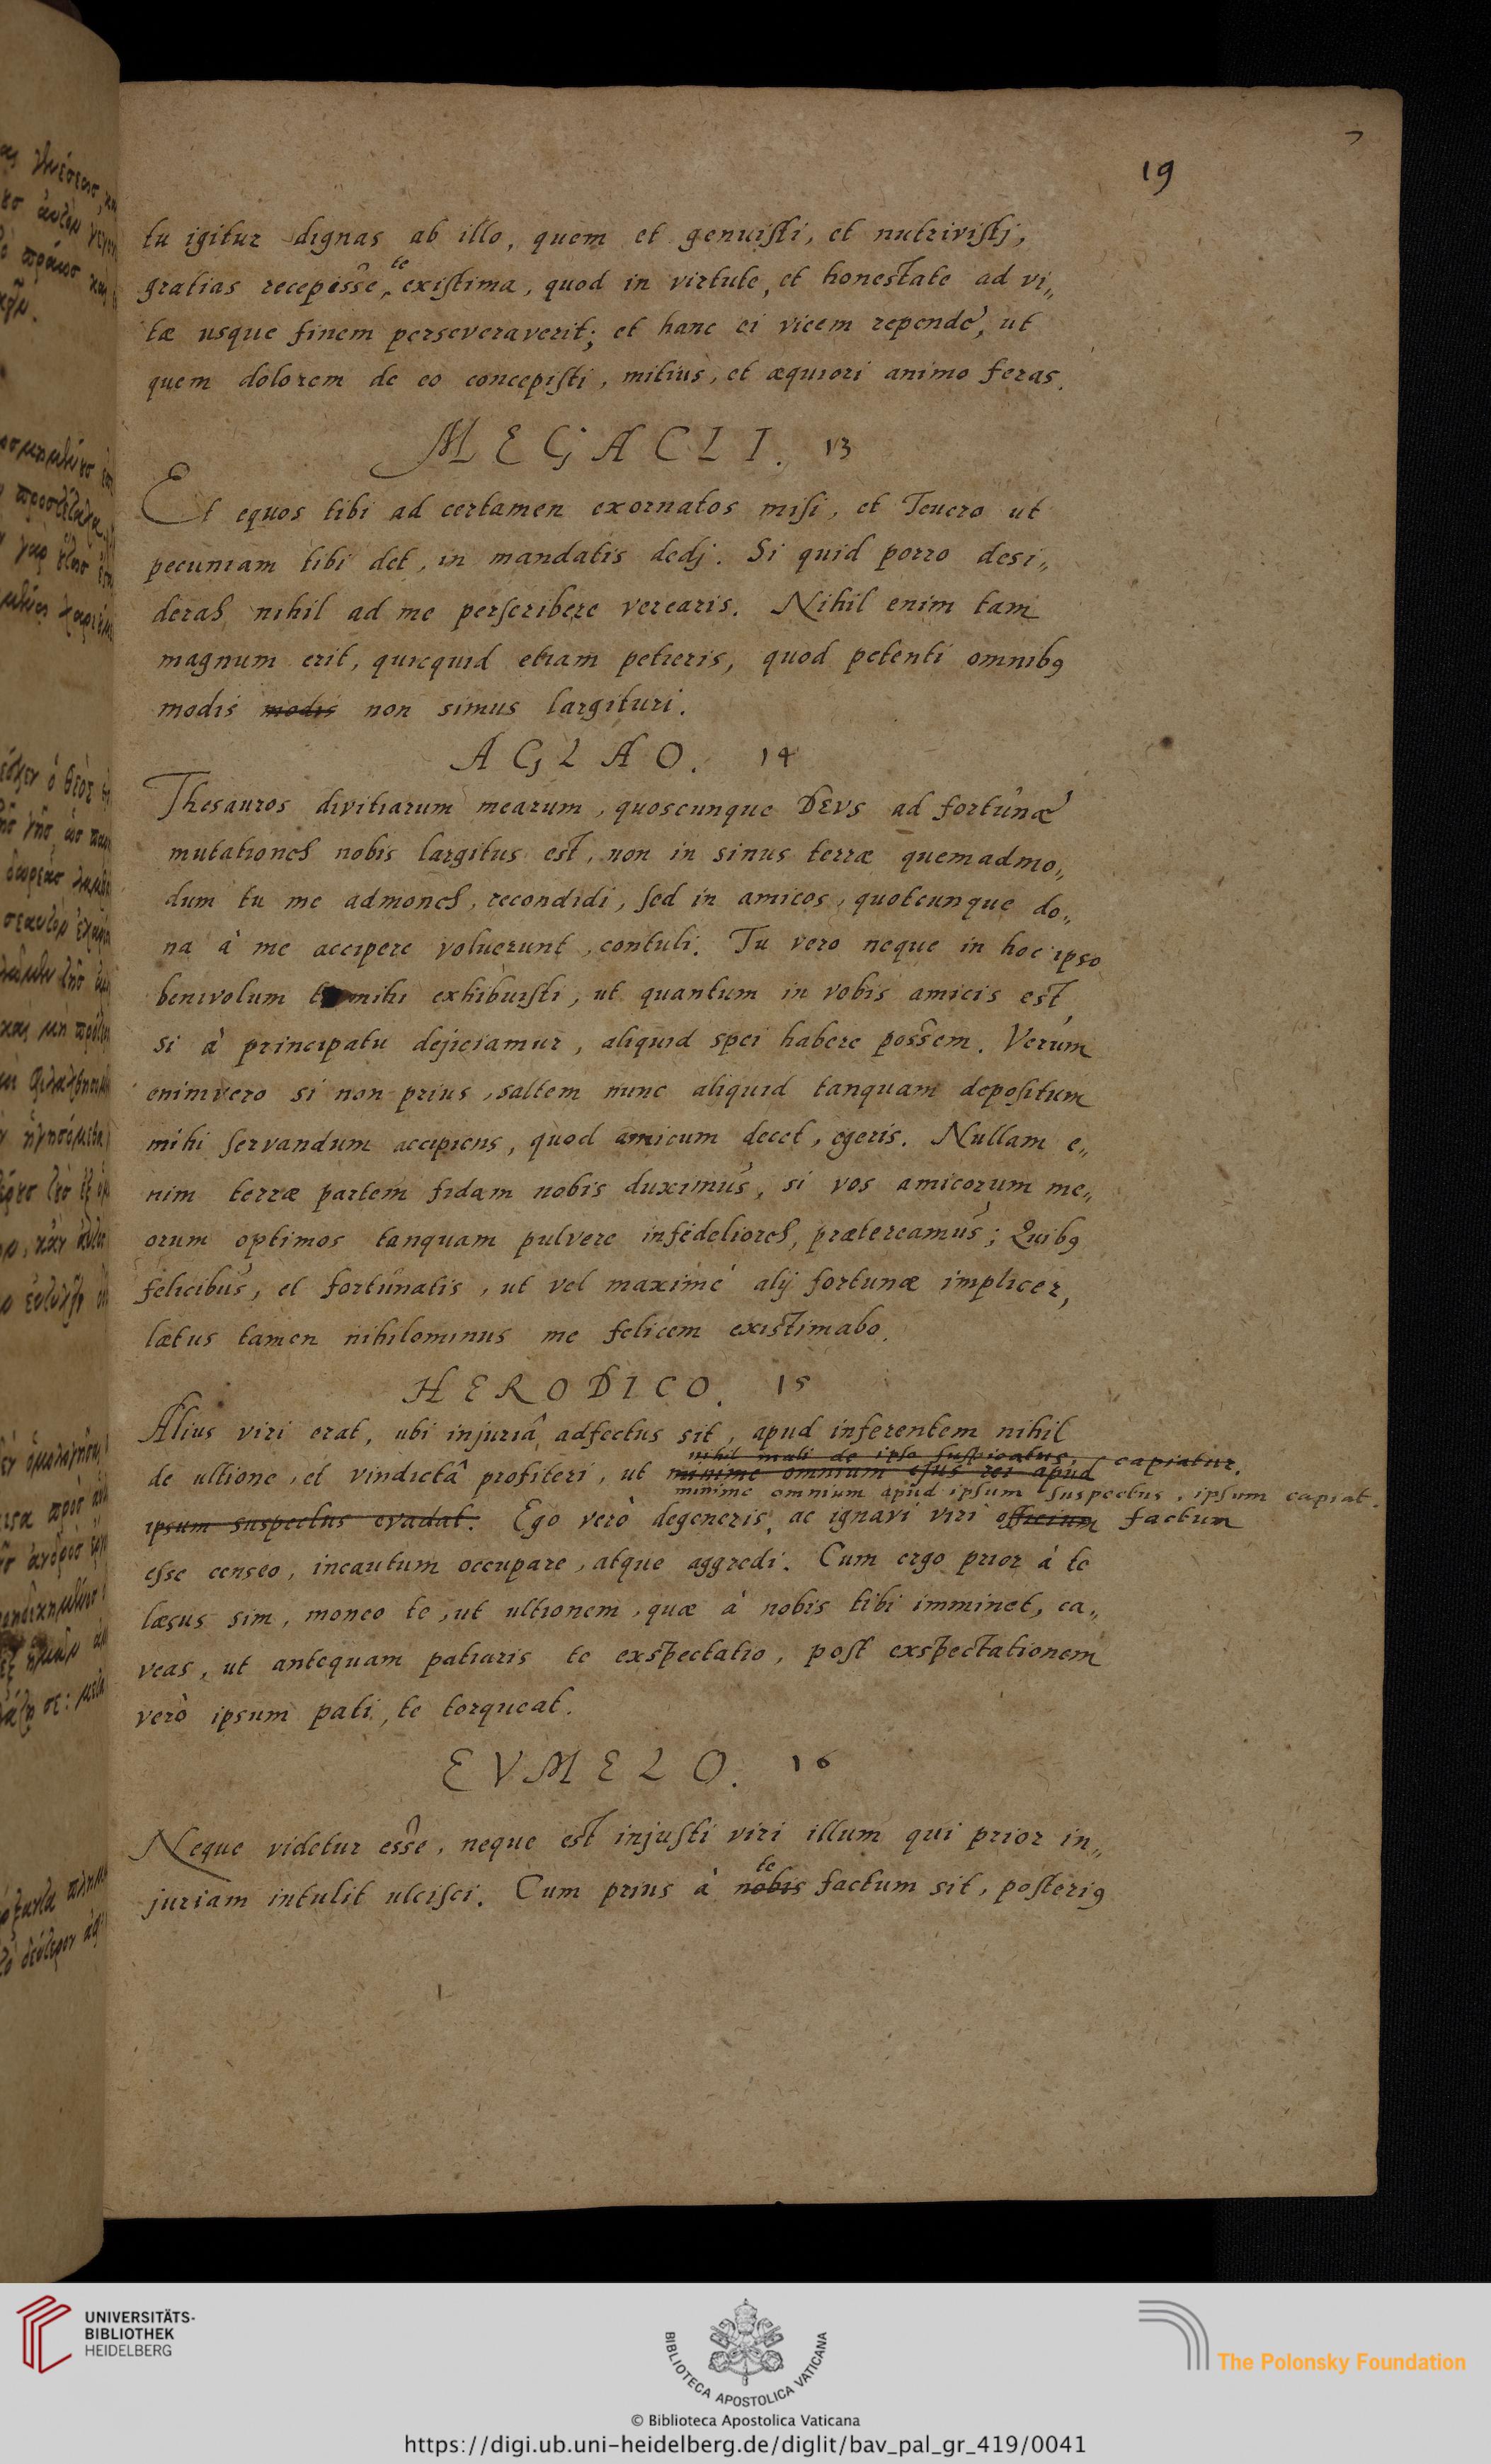 19
tu igitur dignas ab illo, quem et genuisti, et nutrivistj,
gratias recepisse te existima, quod in virtute, et honestate ad vi„
tæ usque finem perseveraverit; et hanc ei vicem repende, ut
quem dolorem de eo concepisti, mitius, et æquiori animo feras.
MEGACLI. 13
Et equos tibi ad certamen exornatos misi, et Teucro ut
pecuniam tibi det, in mandatis dedj. Si quid porro desi„
deras nihil ad me perscribere verearis. Nihil enim tam
magnum erit, quicquid etiam petieris, quod petenti omnibꝰ
modis modis non simus largituri.
AGLAO. 14
Thesauros divitiarum mearum, quoscunque DEVS ad fortunæ
mutationes nobis largitus est, non in sinus terræ quemadmo„
dum tu me admones, recondidi, sed in amicos, quotcunque do„
na à me accipere voluerunt, contuli. Tu vero neque in hoc ipso
benivolum mihi exhibuisti, ut quantum in vobis amicis est,
si à principatu dejiciamur, aliquid spei habere possem. Verum
enimvero si non prius, saltem nunc aliquid tanquam depositum
mihi servandum accipiens, quod amicum decet, egeris. Nullam e„
nim terræ partem fidam nobis duximus, si vos amicorum me„
orum optimos tanquam pulvere infideliores, prætereamus; Quibꝰ
felicibus, et fortunatis, ut vel maximè alij fortunæ implicer,
lætus tamen nihilominus me felicem existimabo.
HERODICO. 15
Alius viri erat, ubi injuriâ adfectus sit, apud inferentem nihil
nihil mali de ipso suspicatus, capiatur.
de ultione, et vindictâ profiteri, ut minime omnium ejus rei apud
minime omnium apud ipsum suspectus, ipsum capiat.
ipsum suspectus evadat. Ego verò degeneris, ac ignavi viri officium factum
esse censeo, incautum occupare, atque aggredi. Cum ergo prior à te
læsus sim, moneo te, ut ultionem, quæ à nobis tibi imminet, ca„
veas, ut antequam patiaris te exspectatio, post exspectationem
verò ipsum pati, te torqueat.
EVMELO. 16
Neque videtur esse, neque est injusti viri illum qui prior in„
juriam intulit ulcisci. Cum prius à nobis te factum sit, posteriꝰ
UNIVERSITÄTS-
BIBLIOTHEK
HEIDELBERG
BIBLIOTECA APOSTOLICA VATICANA
The Polonsky Foundation
© Biblioteca Apostolica Vaticana
https://digi.ub.uni-heidelberg.de/diglit/bav_pal_gr_419/0041